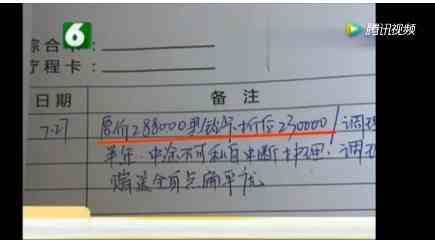 6
腾讯视频
综合卡:
疗程卡:
日期 备注
7.27 原价288000 折后230000! 调理
半年.中途不可私自中断护理! 调理
全员点痛平扰